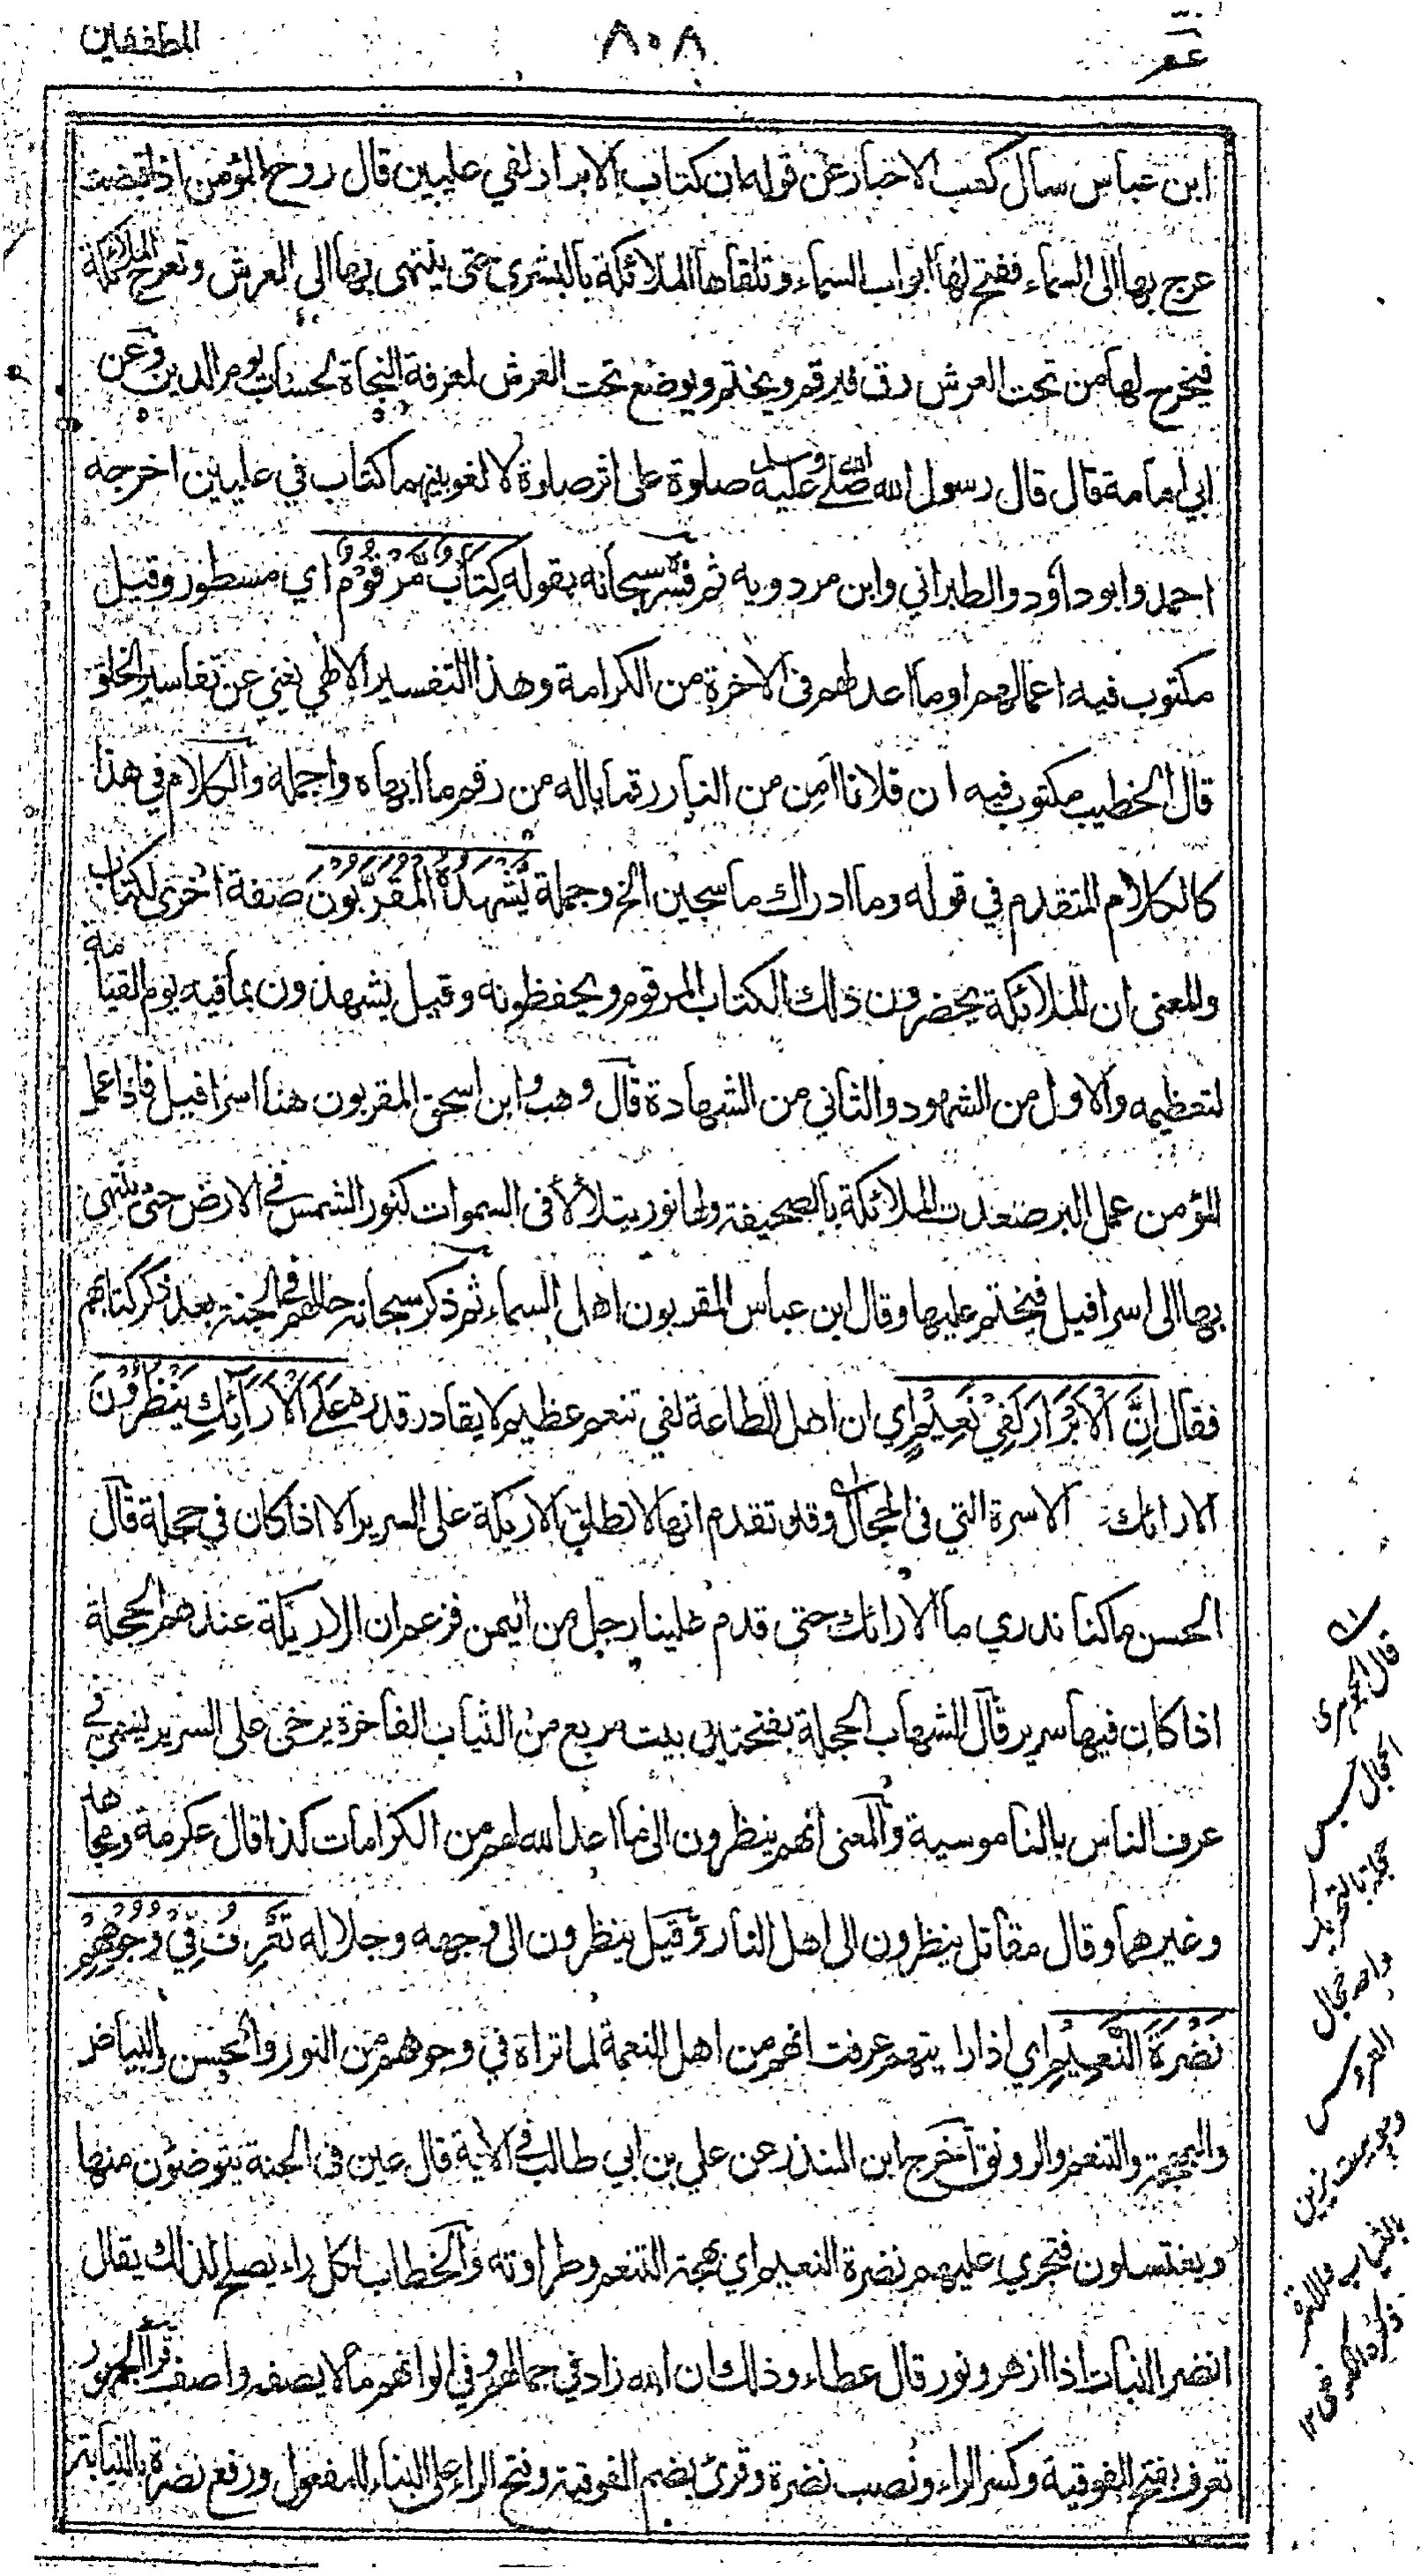 عم
٨٠٨
المطففين
ابن عباس سأل كعب الاحبار عن قوله ان كتاب الابرار لفي عليين قال روح المؤمن اذا قبضت
عرج بها الى السماء ففتح لها ابواب السماء وتلقاها الملائكة بالبشرى حتى ينتهى بها الى العرش وتعرج الملائكة
فيخرج لها من تحت العرش رق فيرقم ويختم ويوضع تحت العرش لمعرفة النجاة لحساب يوم الدين وعن
ابي امامة قال قال رسول الله صلى الله عليه وسلم صلوة على اثر صلوة لا لغو بينهما كتاب في عليين اخرجه
احمد وابو داود والطبراني وابن مردويه ثم فسره سبحانه بقوله كِتَابٌ مَّرْقُوْمٌ اي مسطور وقيل
مكتوب فيه اعمالهم او ما اعد لهم فى الاخرة من الكرامة وهذا التفسير الالهي يغني عن تفاسير الخلق
قال الخطيب مكتوب فيه ان فلانا آمن من النار رقما ياله من رقم ما ابهاه واجمله والكلام في هذا
كالكلام المتقدم في قوله وما ادراك ما سجين الخ وجملة يَّشْهَدُهُ الْمُقَرَّبُوْنَ صفة اخرى لكتاب
والمعنى ان الملائكة يحضرون ذلك الكتاب المرقوم ويحفظونه وقيل يشهدون بما فيه يوم القيامة
لتعظيمه والاول من الشهود والثاني من الشهادة قال وهب وابن اسحق المقربون هنا اسرافيل فاذا عمل
المؤمن عمل البر صعدت الملائكة بالصحيفة ولها نور يتلألأ فى السموات كنور الشمس في الارض حتى ينتهى
بها الى اسرافيل فيختم عليها وقال ابن عباس المقربون اهل السماء ثم ذكر سبحانه حالهم في الجنة بعد ذكر كتابهم
فقال اِنَّ الْاَبْرَارَ لَفِيْ نَعِيْمٍ اي ان اهل الطاعة لفي تنعم عظيم لا يقادر قدره عَلَى الْاَرَآئِكِ يَنْظُرُوْنَ
الارائك الاسرة التي فى الحجال وقد تقدم انها لا تطلق الاريكة على السرير الا اذا كان في حجلة قال
الحسن ما كنا ندري ما الارائك حتى قدم علينا رجل من اليمن فزعم ان الاريكة عندهم الحجلة
اذا كان فيها سرير قال الشهاب الحجلة بفتحتين بيت مربع من الثياب الفاخرة يرخى على السرير يسمى في
عرف الناس بالناموسية والمعنى انهم ينظرون الى ما اعد الله لهم من الكرامات كذا قال عكرمة ومجاهد
وغيرهما وقال مقاتل ينظرون الى اهل النار وقيل ينظرون الى وجهه وجلاله تَعْرِفُ فِيْ وُجُوْهِهِمْ
نَضْرَةَ النَّعِيْمِ اي اذا رايتهم عرفت انهم من اهل النعمة لما تراه في وجوههم من النور والحسن والبياض
والبهجة والتنعم والرونق اخرج ابن المنذر عن علي بن ابي طالب في الآية قال عين فى الجنة يتوضئون منها
ويغتسلون فتجري عليهم نضرة النعيم اي بهجة التنعم وطراوته والخطاب لكل راء يصلح لذلك يقال
انضر النبات اذا ازهر ونور قال عطاء وذلك ان الله زاد في جمالهم وفي الوانهم ما لا يصفه واصف قرأ الجمهور
تعرف بفتح الفوقية وكسر الراء ونصب نضرة وقرئ بضم الفوقية وفتح الراء على البناء للمفعول ورفع نضرة بالنيابة
قال الجوهري
الحجال
حجلة بالتحريك
واحد حجال
العروس
وهو بيت يزين
بالثياب والاسرة